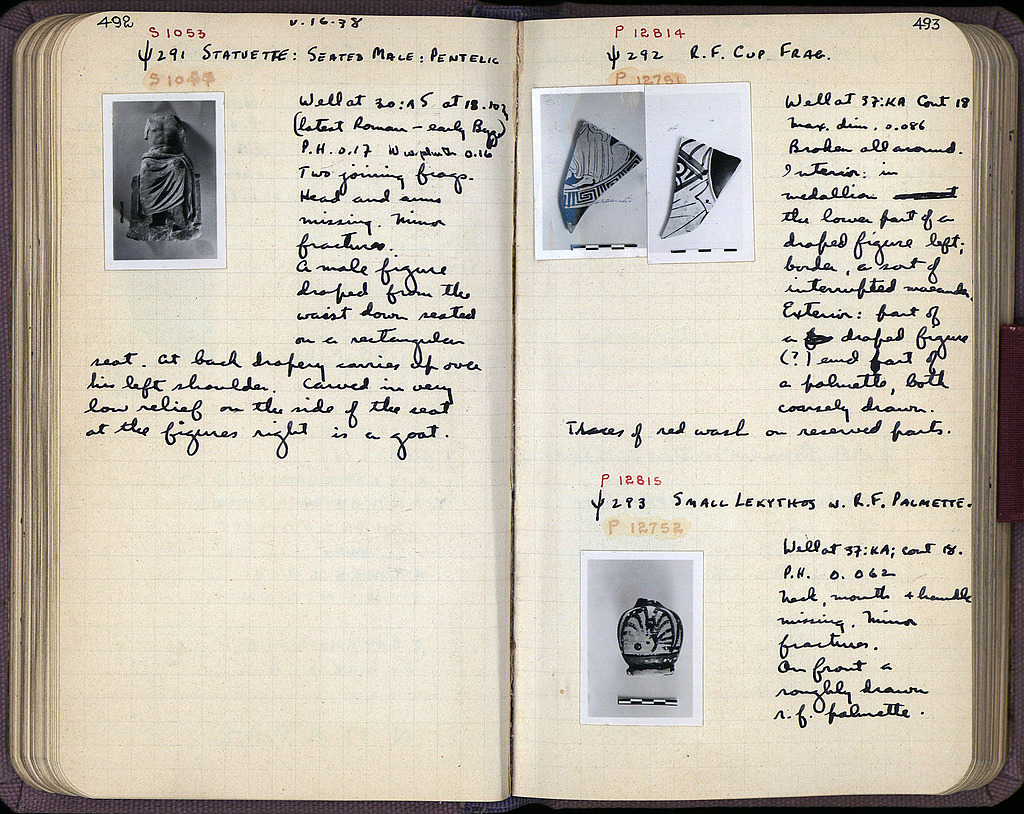 492
v.16.38
S 1053
ψ291 STATUETTE: SEATED MALE: PENTELIC
S 1044
Well at 30:ΛS at 18.10
(latest Roman – early Byz)
P.H. 0.17 W. plinth 0.16
Two joining frags.
Head and arms
missing. Minor
fractures.
A male figure
draped from the
waist down seated
on a rectangular
seat. At back drapery carries up over
his left shoulder. Carved in very
low relief on the side of the seat
at the figures right is a goat.
493
P 12814
ψ292 R.F. CUP FRAG.
P 12751
Well at 37:KA Cont 18
Max. dim. 0.086
Broken all around.
Interior: in
medallion
the lower part of a
draped figure left;
border, a sort of
interrupted maeander.
Exterior: part of
a draped figure
(?) and part of
a palmette, both
coarsely drawn.
Traces of red wash on reserved parts.
P 12815
ψ293 SMALL LEKYTHOS W. R.F. PALMETTE.
P 12752
Well at 37:KA; cont 18.
P.H. 0.062
Neck, mouth + handle
missing. Minor
fractures.
On front a
roughly drawn
r.f. palmette.